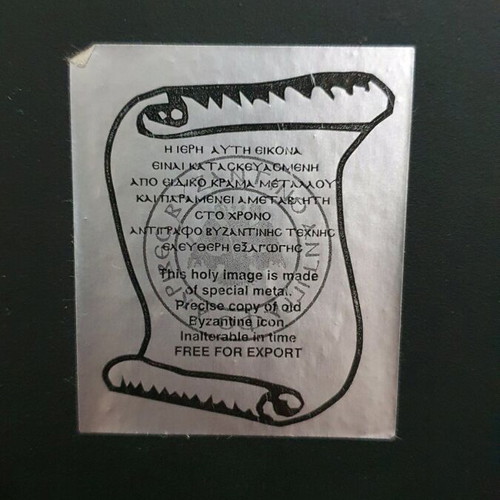 Η ΙΕΡΗ ΑΥΤΗ ΕΙΚΟΝΑ
ΕΙΝΑΙ ΚΑΤΑΣΚΕΥΑΣΜΕΝΗ
ΑΠΟ ΕΙΔΙΚΟ ΚΡΑΜΑ ΜΕΤΑΛΛΟΥ
ΚΑΙ ΠΑΡΑΜΕΝΕΙ ΑΜΕΤΑΒΛΗΤΗ
ΣΤΟ ΧΡΟΝΟ
ΑΝΤΙΓΡΑΦΟ ΒΥΖΑΝΤΙΝΗΣ ΤΕΧΝΗΣ
ΕΛΕΥΘΕΡΗ ΕΞΑΓΩΓΗΣ
This holy image is made
of special metal.
Precise copy of old
Byzantine icon
Inalterable in time
FREE FOR EXPORT